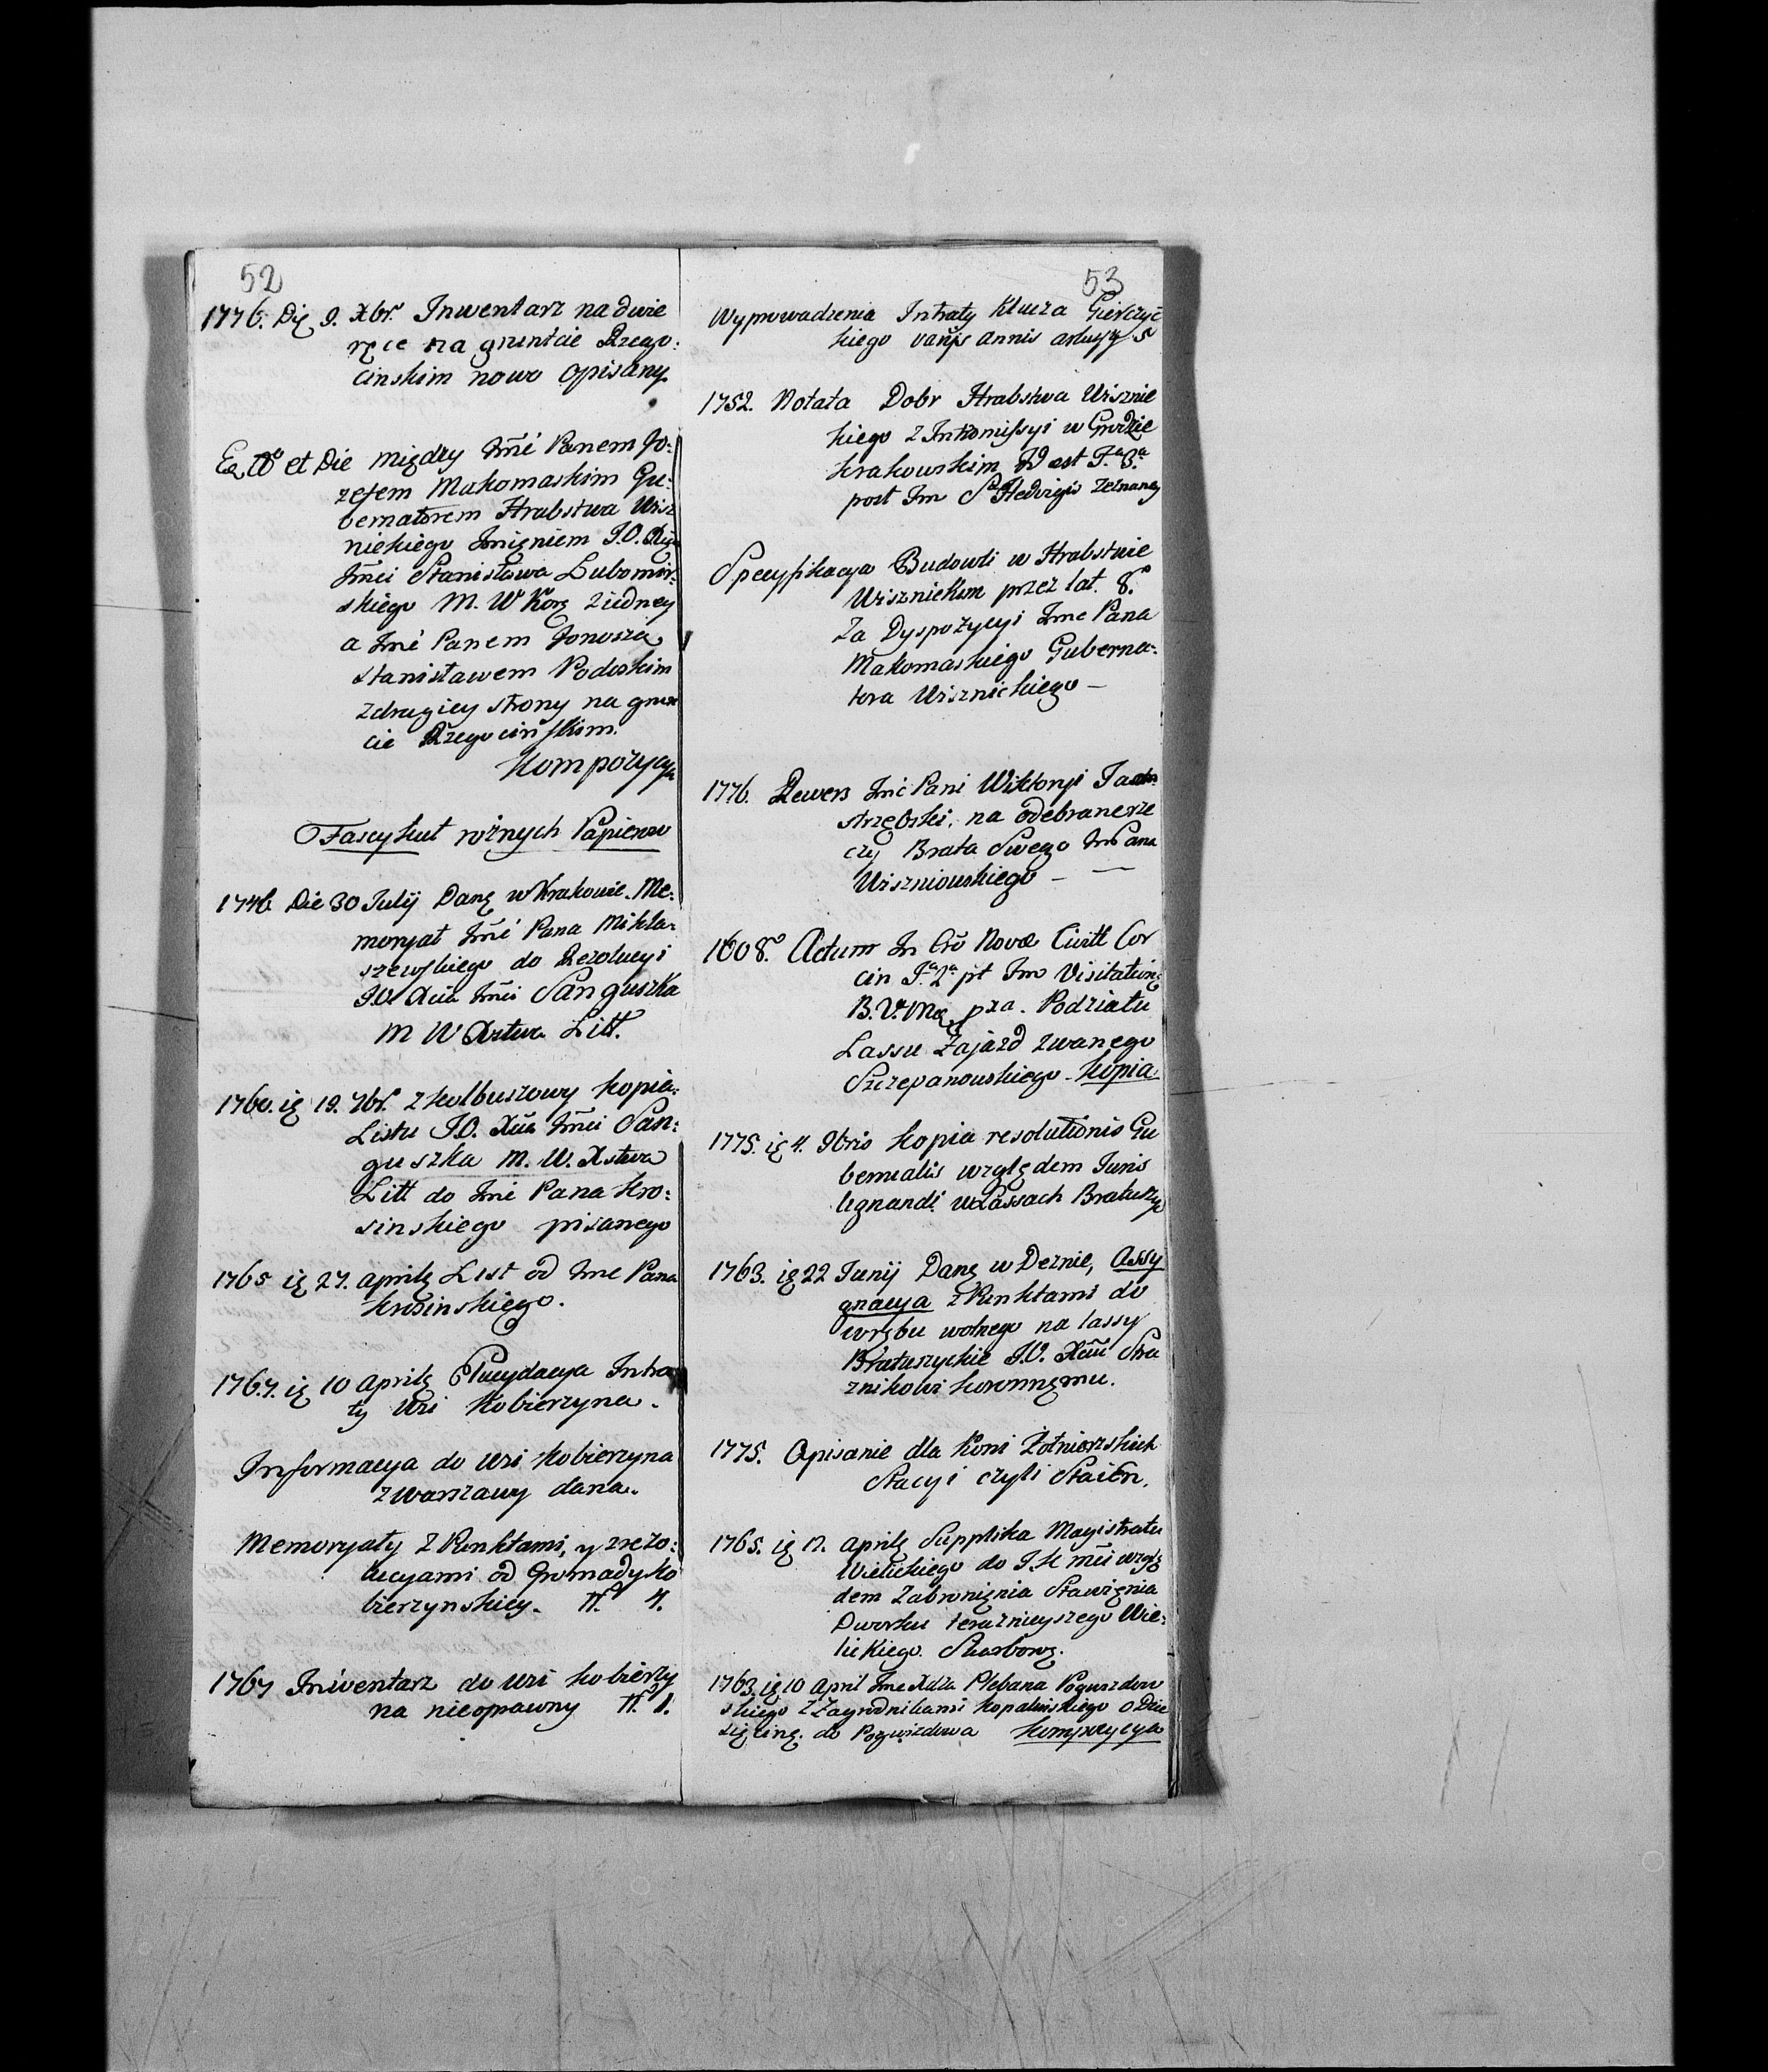 52
1776. Die 9. Xbr. Inwentarz na dwie
ręce na gruntcie Rzego:
cinskim nowo opisany
Eo. Aº et Die między Jmć Panem Jo:
zefem Makomaskim Gu:
bernatorem Hrabstwa Wisz
nickiego Jmięniem J.O. Xcia
Jmći Stanisława Lubomir:
skiego M. W Korę ziedney
a Jmć Panem Jonosza
stanisławem Podoskim
zdrugiey strony na grun
cie Rzegocinskim.
Kompozycya
Fascykuł rożnych Papierow
1746 Die 30 Julij Dang w Krakowie. Me:
moryał Jmć Pana Mikla-
szewskiego do Rezolucyi
J.O. Xcia Jmći Sanguszka
M W Xstwa Litt.
1760. ig 19. 7br. z Kolbuszowy Kopia
Listu J.O. Xcia Jmći San:
guszka M. W. Xstwa
Litt do Jmć Pana Kro:
sinskiego pisanego
1765 ig 27. aprilg List od Jmc Pana
Krosinskiego.
1767. ig 10 aprilg Elucydacya Intra
ty Wsi Kobierzyna.
Informacya do Wsi Kobierzyna
z Warszawy dana.
Memoryały z Punktami, y zrezo:
lucyami od Gromady Ko
bierzynskiey. Nº 4.
1767 Inwentarz do Wsi Kobierzy
na nieoprawny Nº 1.
53
Wyprowadzenia Intraty Klucza Gierczyc
kiego varijs annis arkuszy 5
1752. Notata Dobr Hrabstwa Wisznic
kiego z Intromissyi w Grodzie
Krakowskim Fª 3ª
post Jm Sº Hedvigis zeznaney
Specyfikacya Budowli w Hrabstwie
Wisznickim przez lat. 8º
Za Dyspozycyi Jmc Pana
Makomaskiego Guberna:
tora Wisznickiego –
1776. Rewers Jmć Pani Wiktoryi Ja
strzębski, na odebrane rze
czy Brata Swego Jm Pana
Wiszniowskiego – —
1608º Actum In Novæ Civitt Cor
cin Fª 2ª pt Jm Visitationę
B.V. Mæ, pza. Podziału
Lassu Zajazd zwanego
Szczepanowskiego – Kopia
1775. ig 4. 9bris Kopia resolutionis Gu
bernialis względem Juris
lignandi w Lassach Bratuszy
1763. ig 22 Junij Dang w Deznie, Assy
gnacya z Punktami do
wrębu wolnego na lassy
Bratuszyckie J.O. Xciu Stra
znikowi Koronnęmu.
1775. Opisanie dla Koni Żołnierskich
Stacyi czyli Staien.
1765. ig 17. aprilg Supplika Magistratu
Wielickiego do J.K mći wzglę
dem zabronięnia Stawięnia
Dworku teraznieyszego Wie:
lickiego. Skarbowę.
1763. ig 10 April Jmc Xdza Plebana Pogwizdow
skiego z Zagrodnikami Kopalinskiego o Dzie
sięcinę. do Pogwizdowa Kompozycya